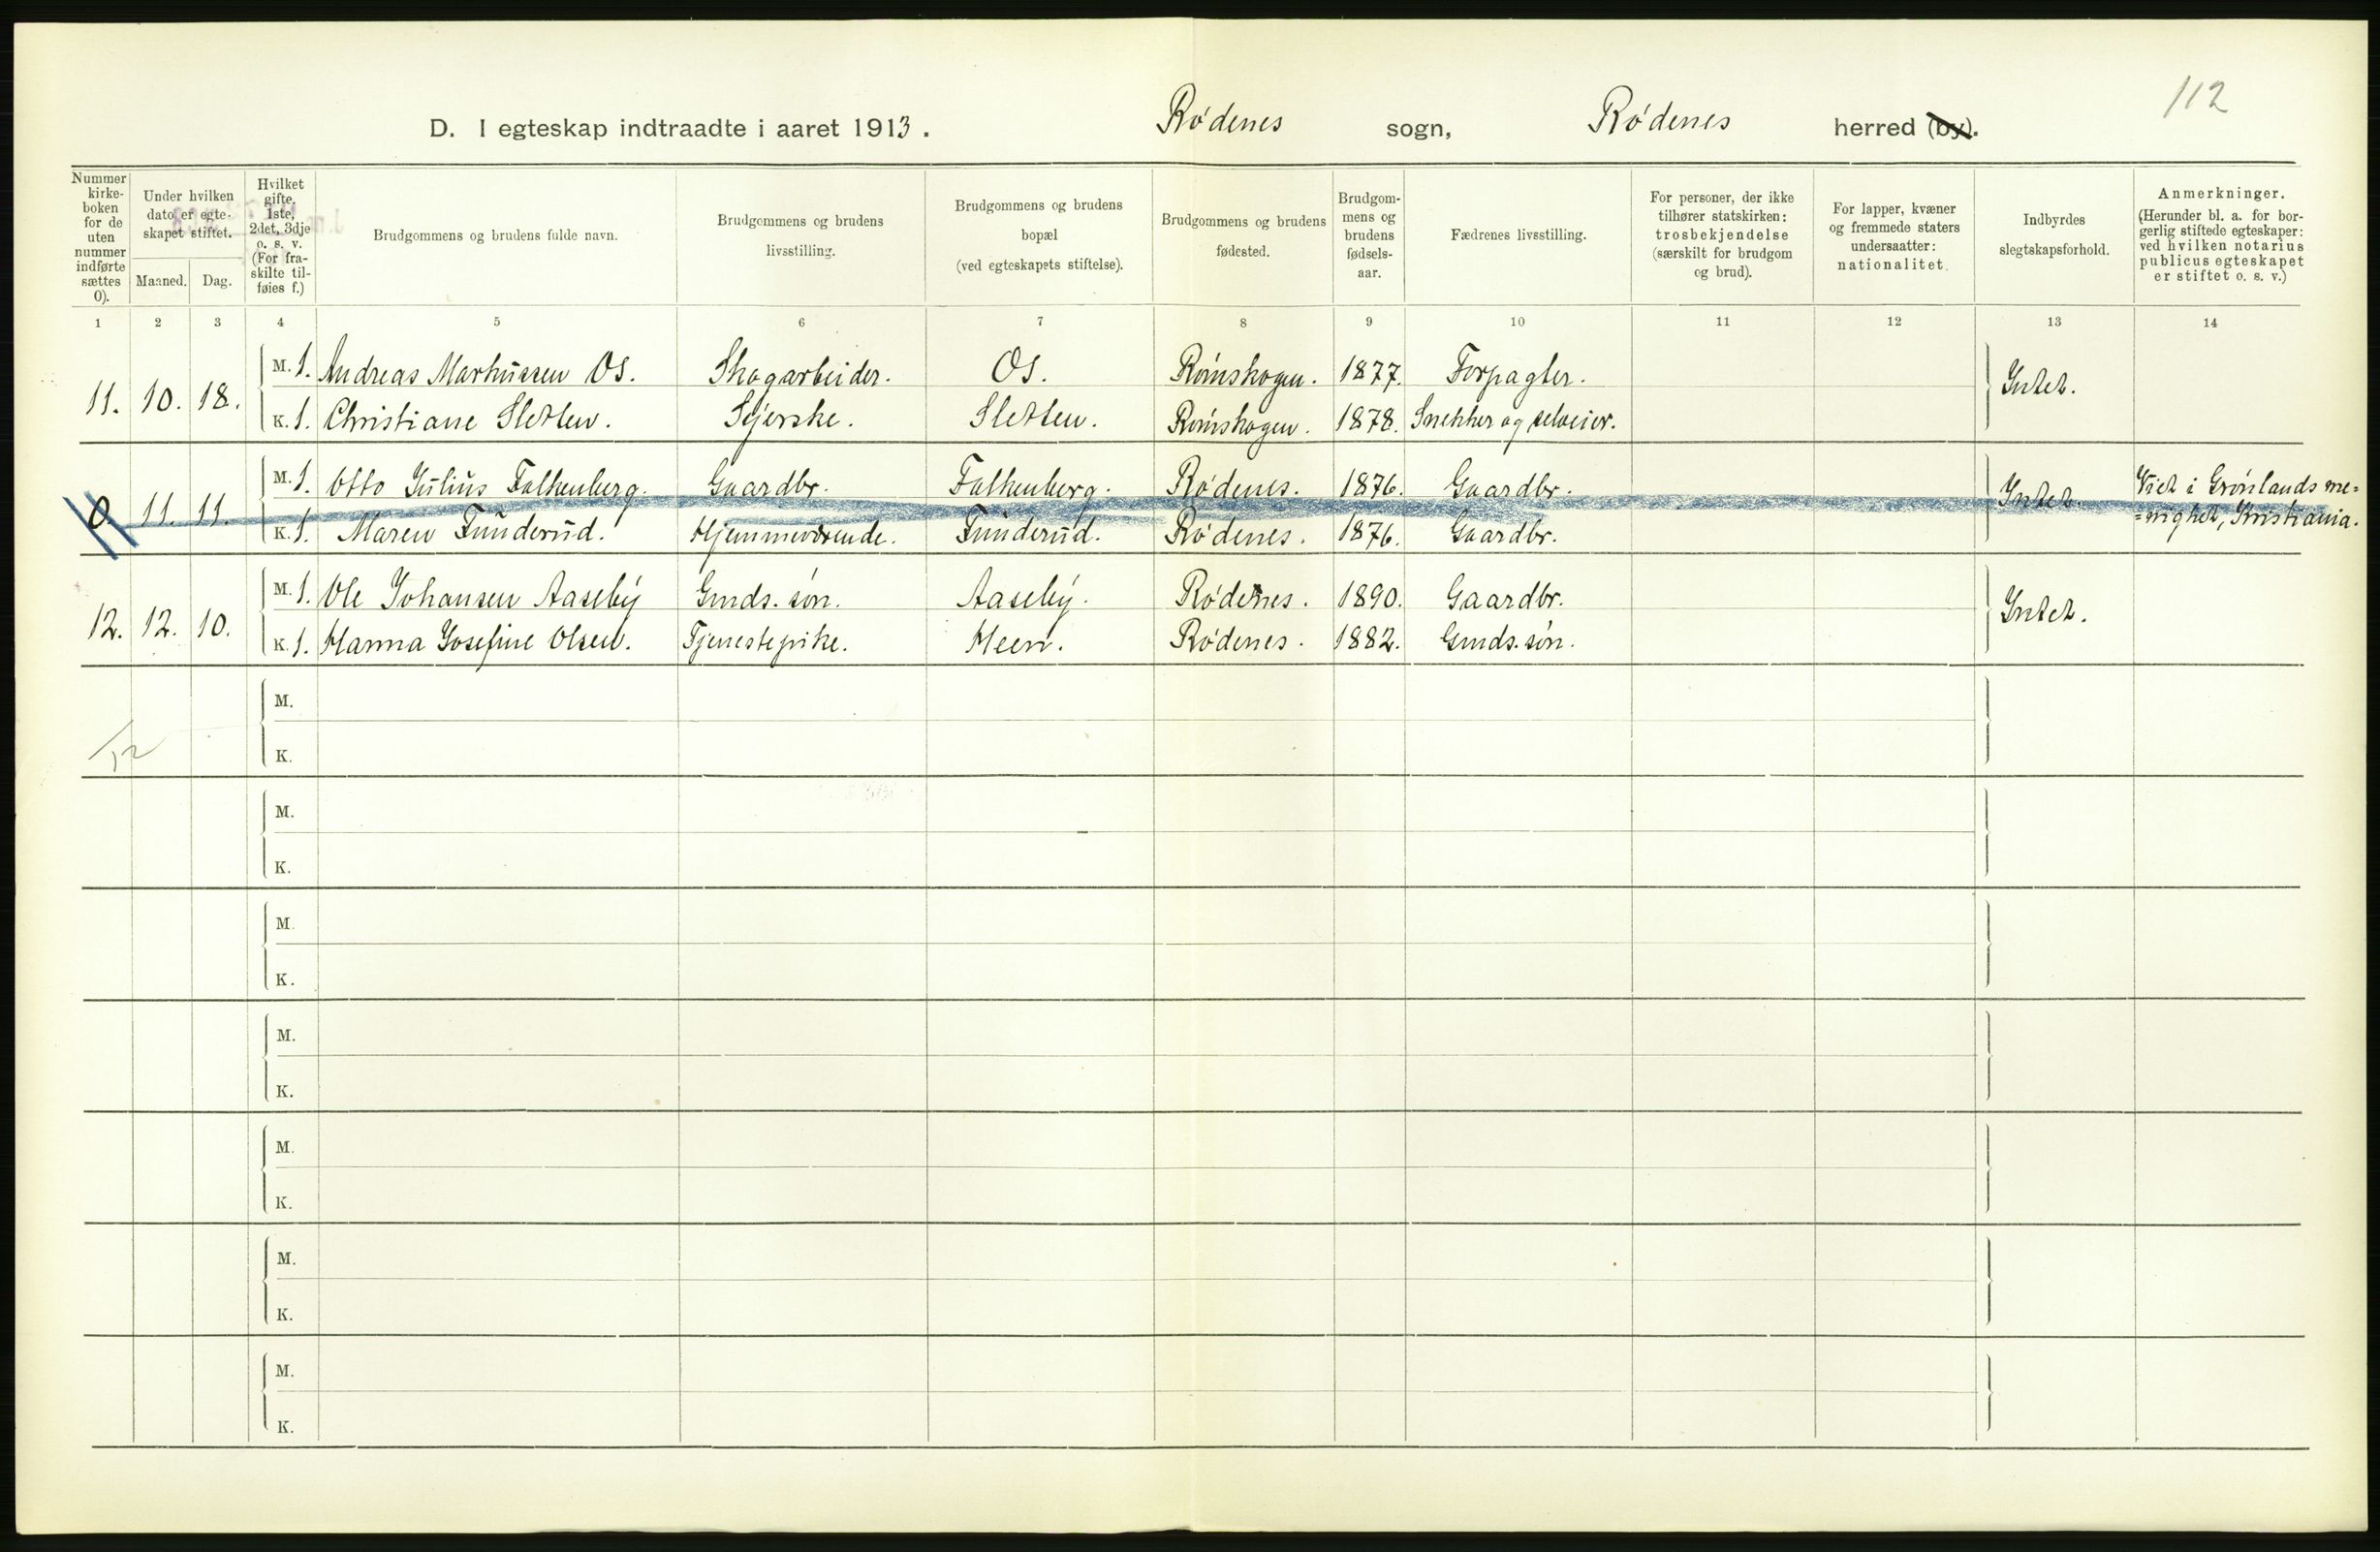 112
D. I egteskap indtraadte i aaret 1913. Rødenes sogn, Rødenes herred (by).
Nummer kirke-boken for de uten nummer indførte sættes 0). Under hvilken dato er egte-skapet stiftet. Maaned. Dag. Hvilket gifte, 1ste, 2det, 3dje o. s. v. (For fra-skilte til-føies f.) Brudgommens og brudens fulde navn. Brudgommens og brudens livsstilling. Brudgommens og brudens bopæl (ved egteskapets stiftelse). Brudgommens og brudens fødested. Brudgom-mens og brudens fødsels-aar. Fædrenes livsstilling. For personer, der ikke tilhører statskirken: trosbekjendelse (særskilt for brudgom og brud). For lapper, kvæner og fremmede staters undersaatter: nationalitet. Indbyrdes slegtskapsforhold. Anmerkninger. (Herunder bl. a. for bor-gerlig stiftede egteskaper: ved hvilken notarius publicus egteskapet er stiftet o. s. v.)
1 2 3 4 5 6 7 8 9 10 11 12 13 14
M. 1. Andreas Markussen Os. Skogarbeider. Os. Rømskogen. 1877. Forpagter.
11. 10. 18. Intet.
K. 1. Christiane Sletten. Syerske. Sletten. Rømskogen. 1878. Snekker og selveier.
M. 1. Otto Julius Falkenberg. Gaardbr. Falkenberg. Rødenes. 1876. Gaardbr. Viet i Grønlands me-
0 11. 11. Intet. =nighet, Kristiania.
K. 1. Maren Funderud. Hjemmeværende. Funderud. Rødenes. 1876. Gaardbr.
M. 1. Ole Johansen Aaseby Gmds. søn. Aaseby. Rødenes. 1890. Gaardbr.
12. 12. 10. Intet.
K. 1. Hanna Josefine Olsen. Tjenestepike. Heen. Rødenes. 1882. Gmds. søn.
M.
12
K.
M.
K.
M.
K.
M.
K.
M.
K.
M.
K.
M.
K.